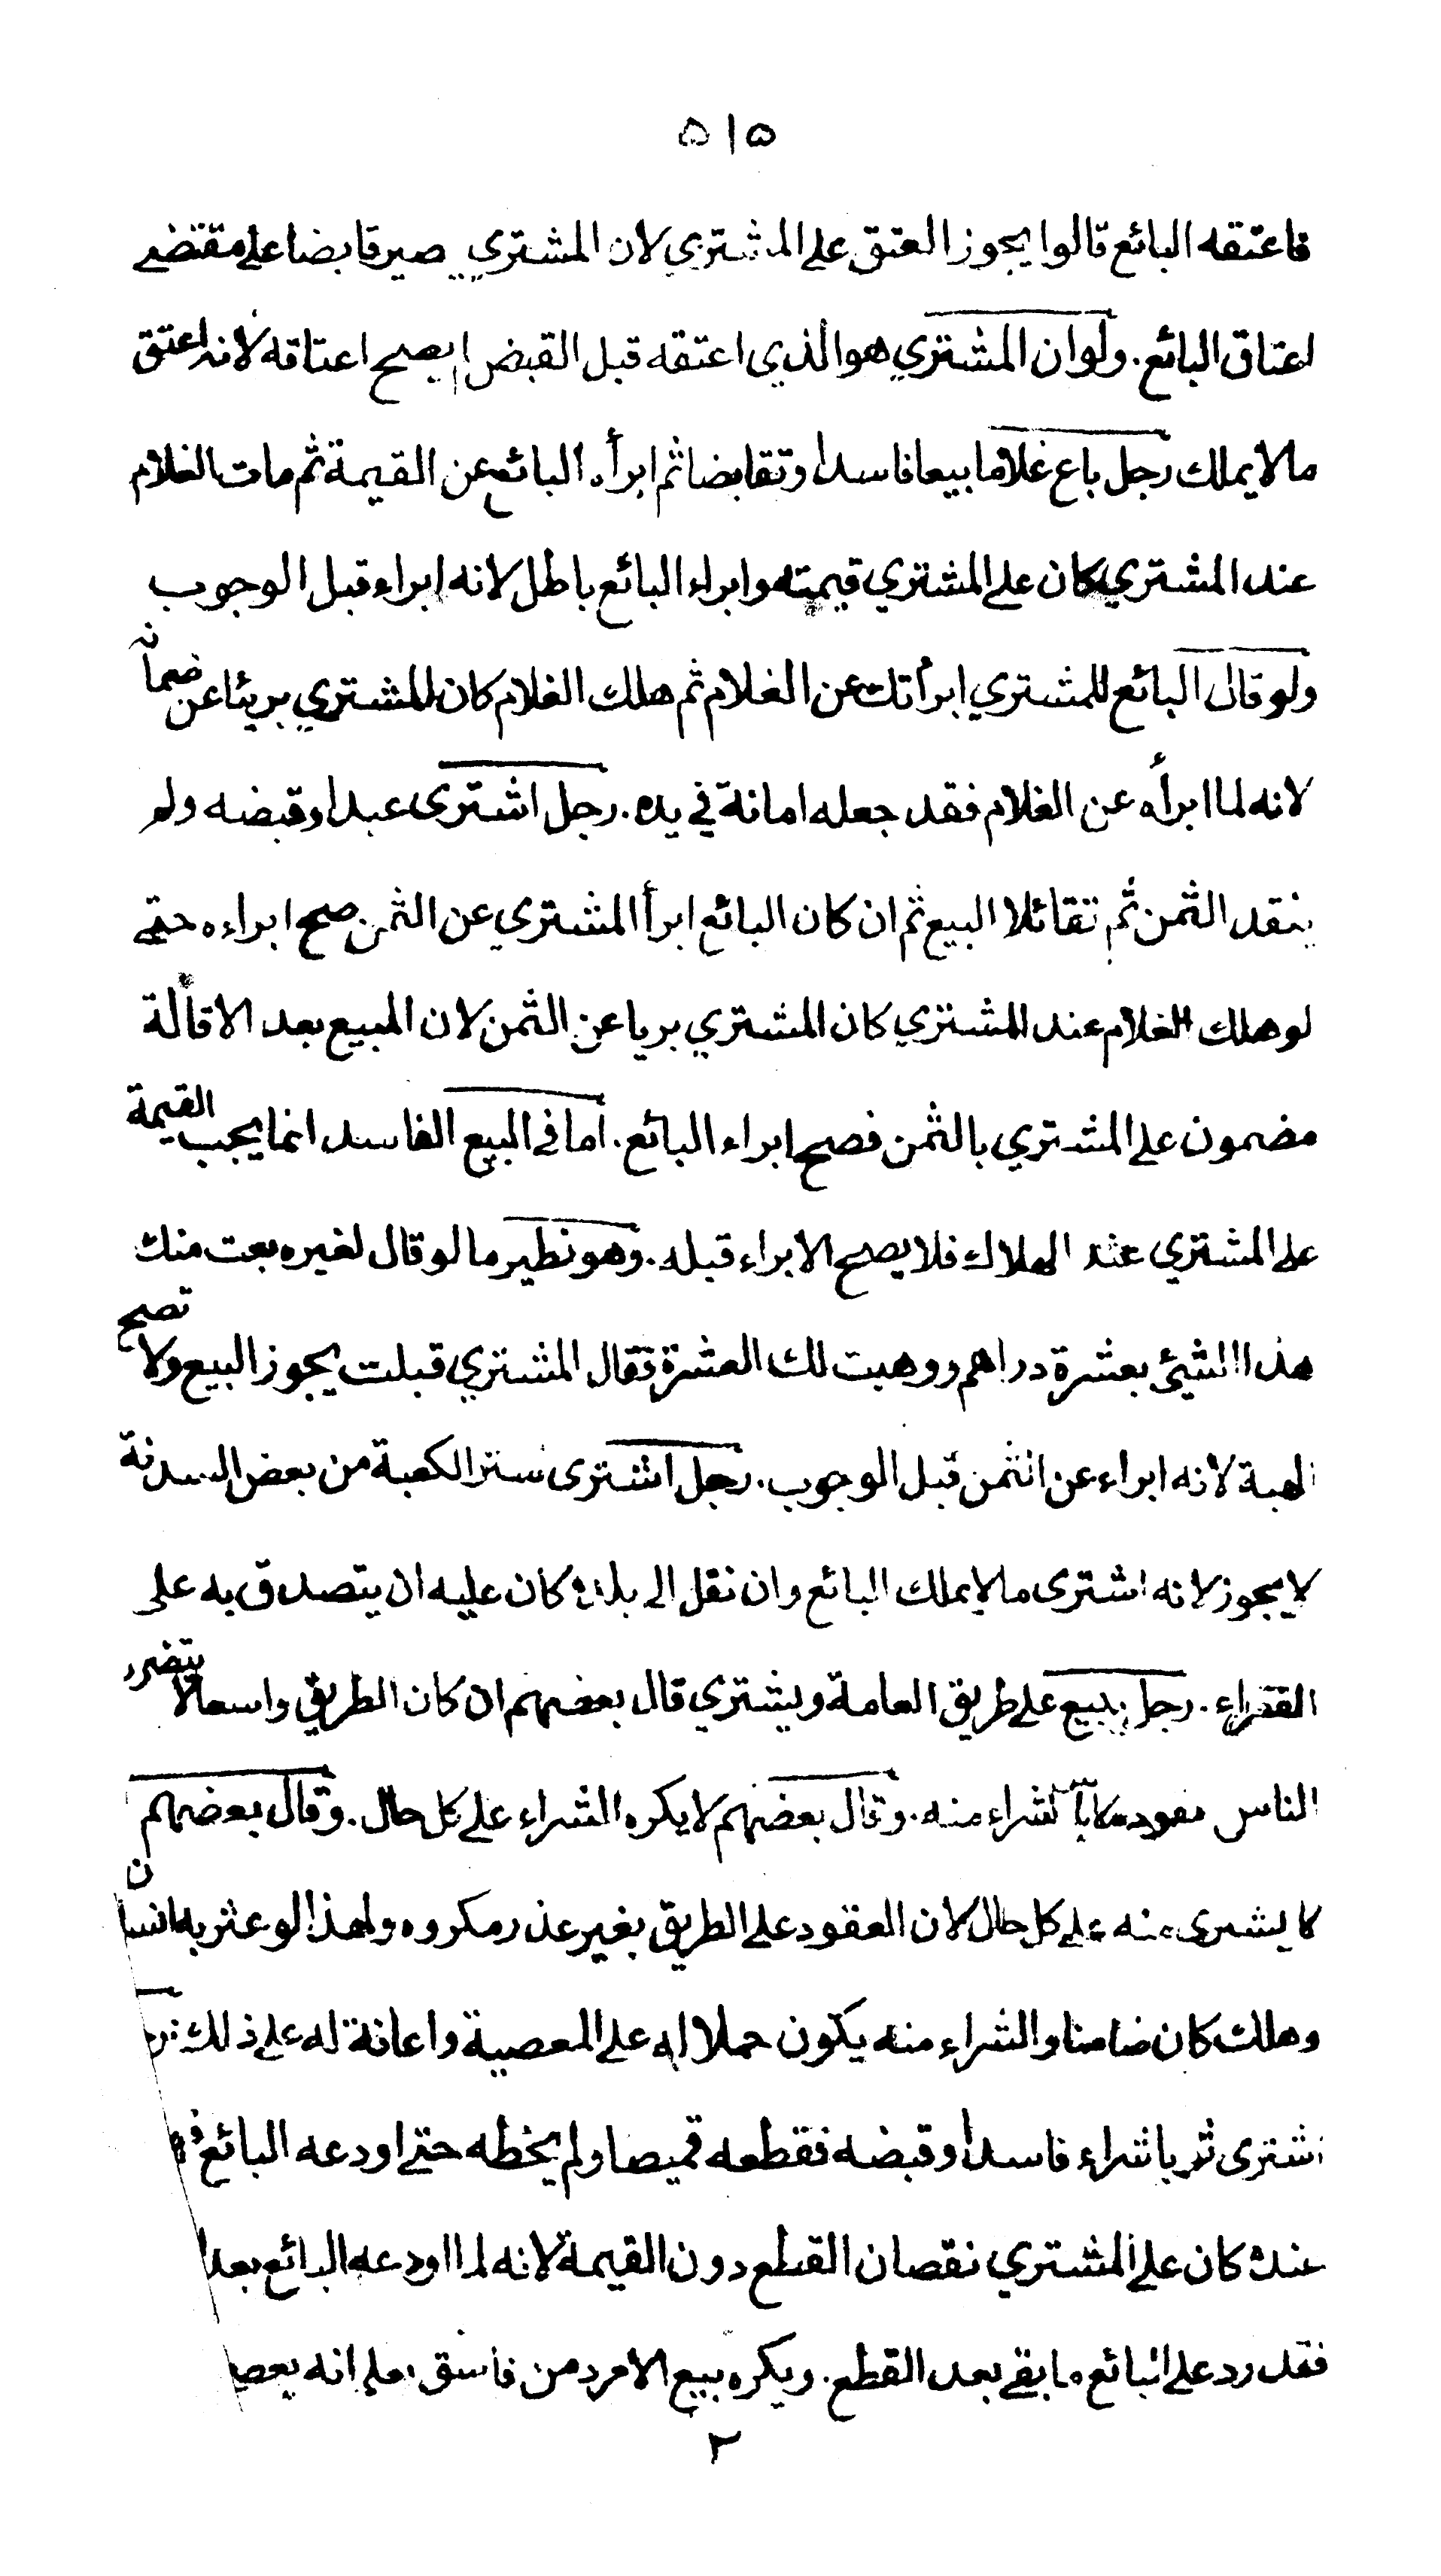 ۵۱۵
فاعتقه البائع قالوا يجوز العتق على المشتري لان المشتري يصير قابضا على مقتضى
اعتاق البائع. ولو ان المشتري هو الذي اعتقه قبل القبض لم يصح اعتاقه لانه اعتق
ما لا يملك رجل باع غلاما بيعا فاسدا وتقابضا ثم ابرأه البائع عن القيمة ثم مات الغلام
عند المشتري كان على المشتري قيمته وابراء البائع باطل لانه ابراء قبل الوجوب
ولو قال البائع للمشتري ابرأتك عن الغلام ثم هلك الغلام كان المشتري بريئا عن ضمانه
لانه لما ابرأه عن الغلام فقد جعله امانة في يده. رجل اشترى عبدا وقبضه ولم
ينقد الثمن ثم تقائلا البيع ثم ان كان البائع ابرأ المشتري عن الثمن صح ابراءه حتى
لو هلك الغلام عند المشتري كان المشتري بريا عن الثمن لان المبيع بعد الاقالة
مضمون على المشتري بالثمن فصح ابراء البائع. اما في البيع الفاسد انما يجب القيمة
على المشتري عند الهلاك فلا يصح الابراء قبله. وهو نظير ما لو قال لغيره بعت منك
هذا الشيئ بعشرة دراهم ووهبت لك العشرة فقال المشتري قبلت يجوز البيع ولا تصح
الهبة لانه ابراء عن الثمن قبل الوجوب. رجل اشترى ستر الكعبة من بعض السدنة
لا يجوز لانه اشترى ما لا يملك البائع وان نقل الى بلدة كان عليه ان يتصدق به على
الفقراء. رجل يبيع على طريق العامة ويشتري قال بعضهم ان كان الطريق واسعا لا يتضرر
الناس بقعوده لا بأس بالشراء منه. وقال بعضهم لا يكره الشراء على كل حال. وقال بعضهم
لا يشترى منه على كل حال لان العقود على الطريق بغير عذر مكروه ولهذا لو عثر به انسان
وهلك كان ضامنا والشراء منه يكون حملا له على المعصية واعانة له على ذلك
اشترى ثوبا شراء فاسدا وقبضه فقطعه قميصا ولم يخطه حتى اودعه البائع
عنده كان على المشتري نقصان القطع دون القيمة لانه لما اودعه البائع بعد
فقد رد على البائع ما بقي بعد القطع. ويكره بيع الامرد من فاسق يعلم انه
۲